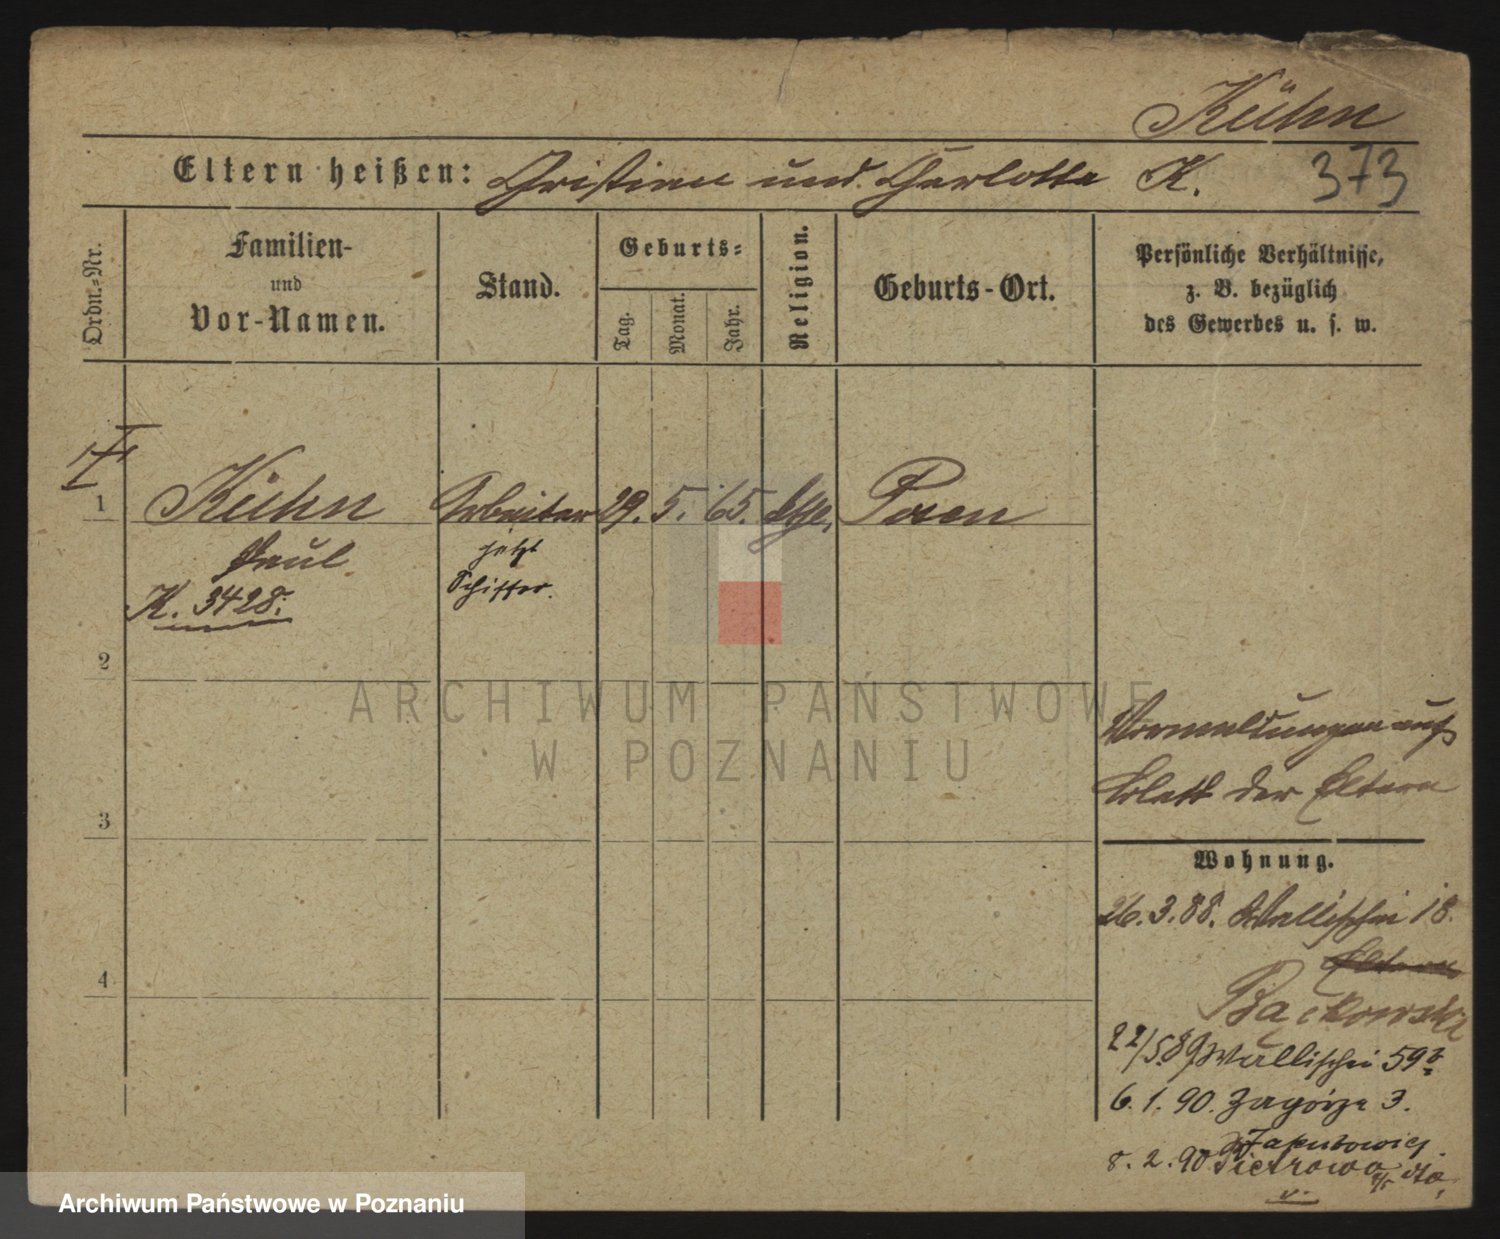 Kühn
Eltern heißen: Christian und Charlotte K. 373
Ordn.-Nr.
Familien-
und
Vor-Namen.
Stand.
Geburts-
Tag.
Monat.
Jahr.
Religion.
Geburts-Ort.
Persönliche Verhältnisse,
z. B. bezüglich
des Gewerbes u. s. w.
1 Kühn Arbeiter 29. 5. 65. Posen
Paul jetzt
K. 3428. Schiffer.
2
3
4
Vermeldungen auf
Blatt der Eltern
Wohnung.
26.3.88. Wallischei 18.
Eltern
Bąckowski
22/5 89 Wallischei 59
6. 1. 90. Zagórze 3.
8. 2. 90 Pietrowo
ARCHIWUM PAŃSTWOWE
W POZNANIU
Archiwum Państwowe w Poznaniu